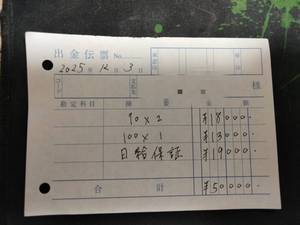 出金伝票 No.
2025年12月3日
コード 支払先 様
勘定科目 摘要 金額
90×2 ¥18000
100×1 ¥13000
日給保証 ¥19000
合計 ¥50000